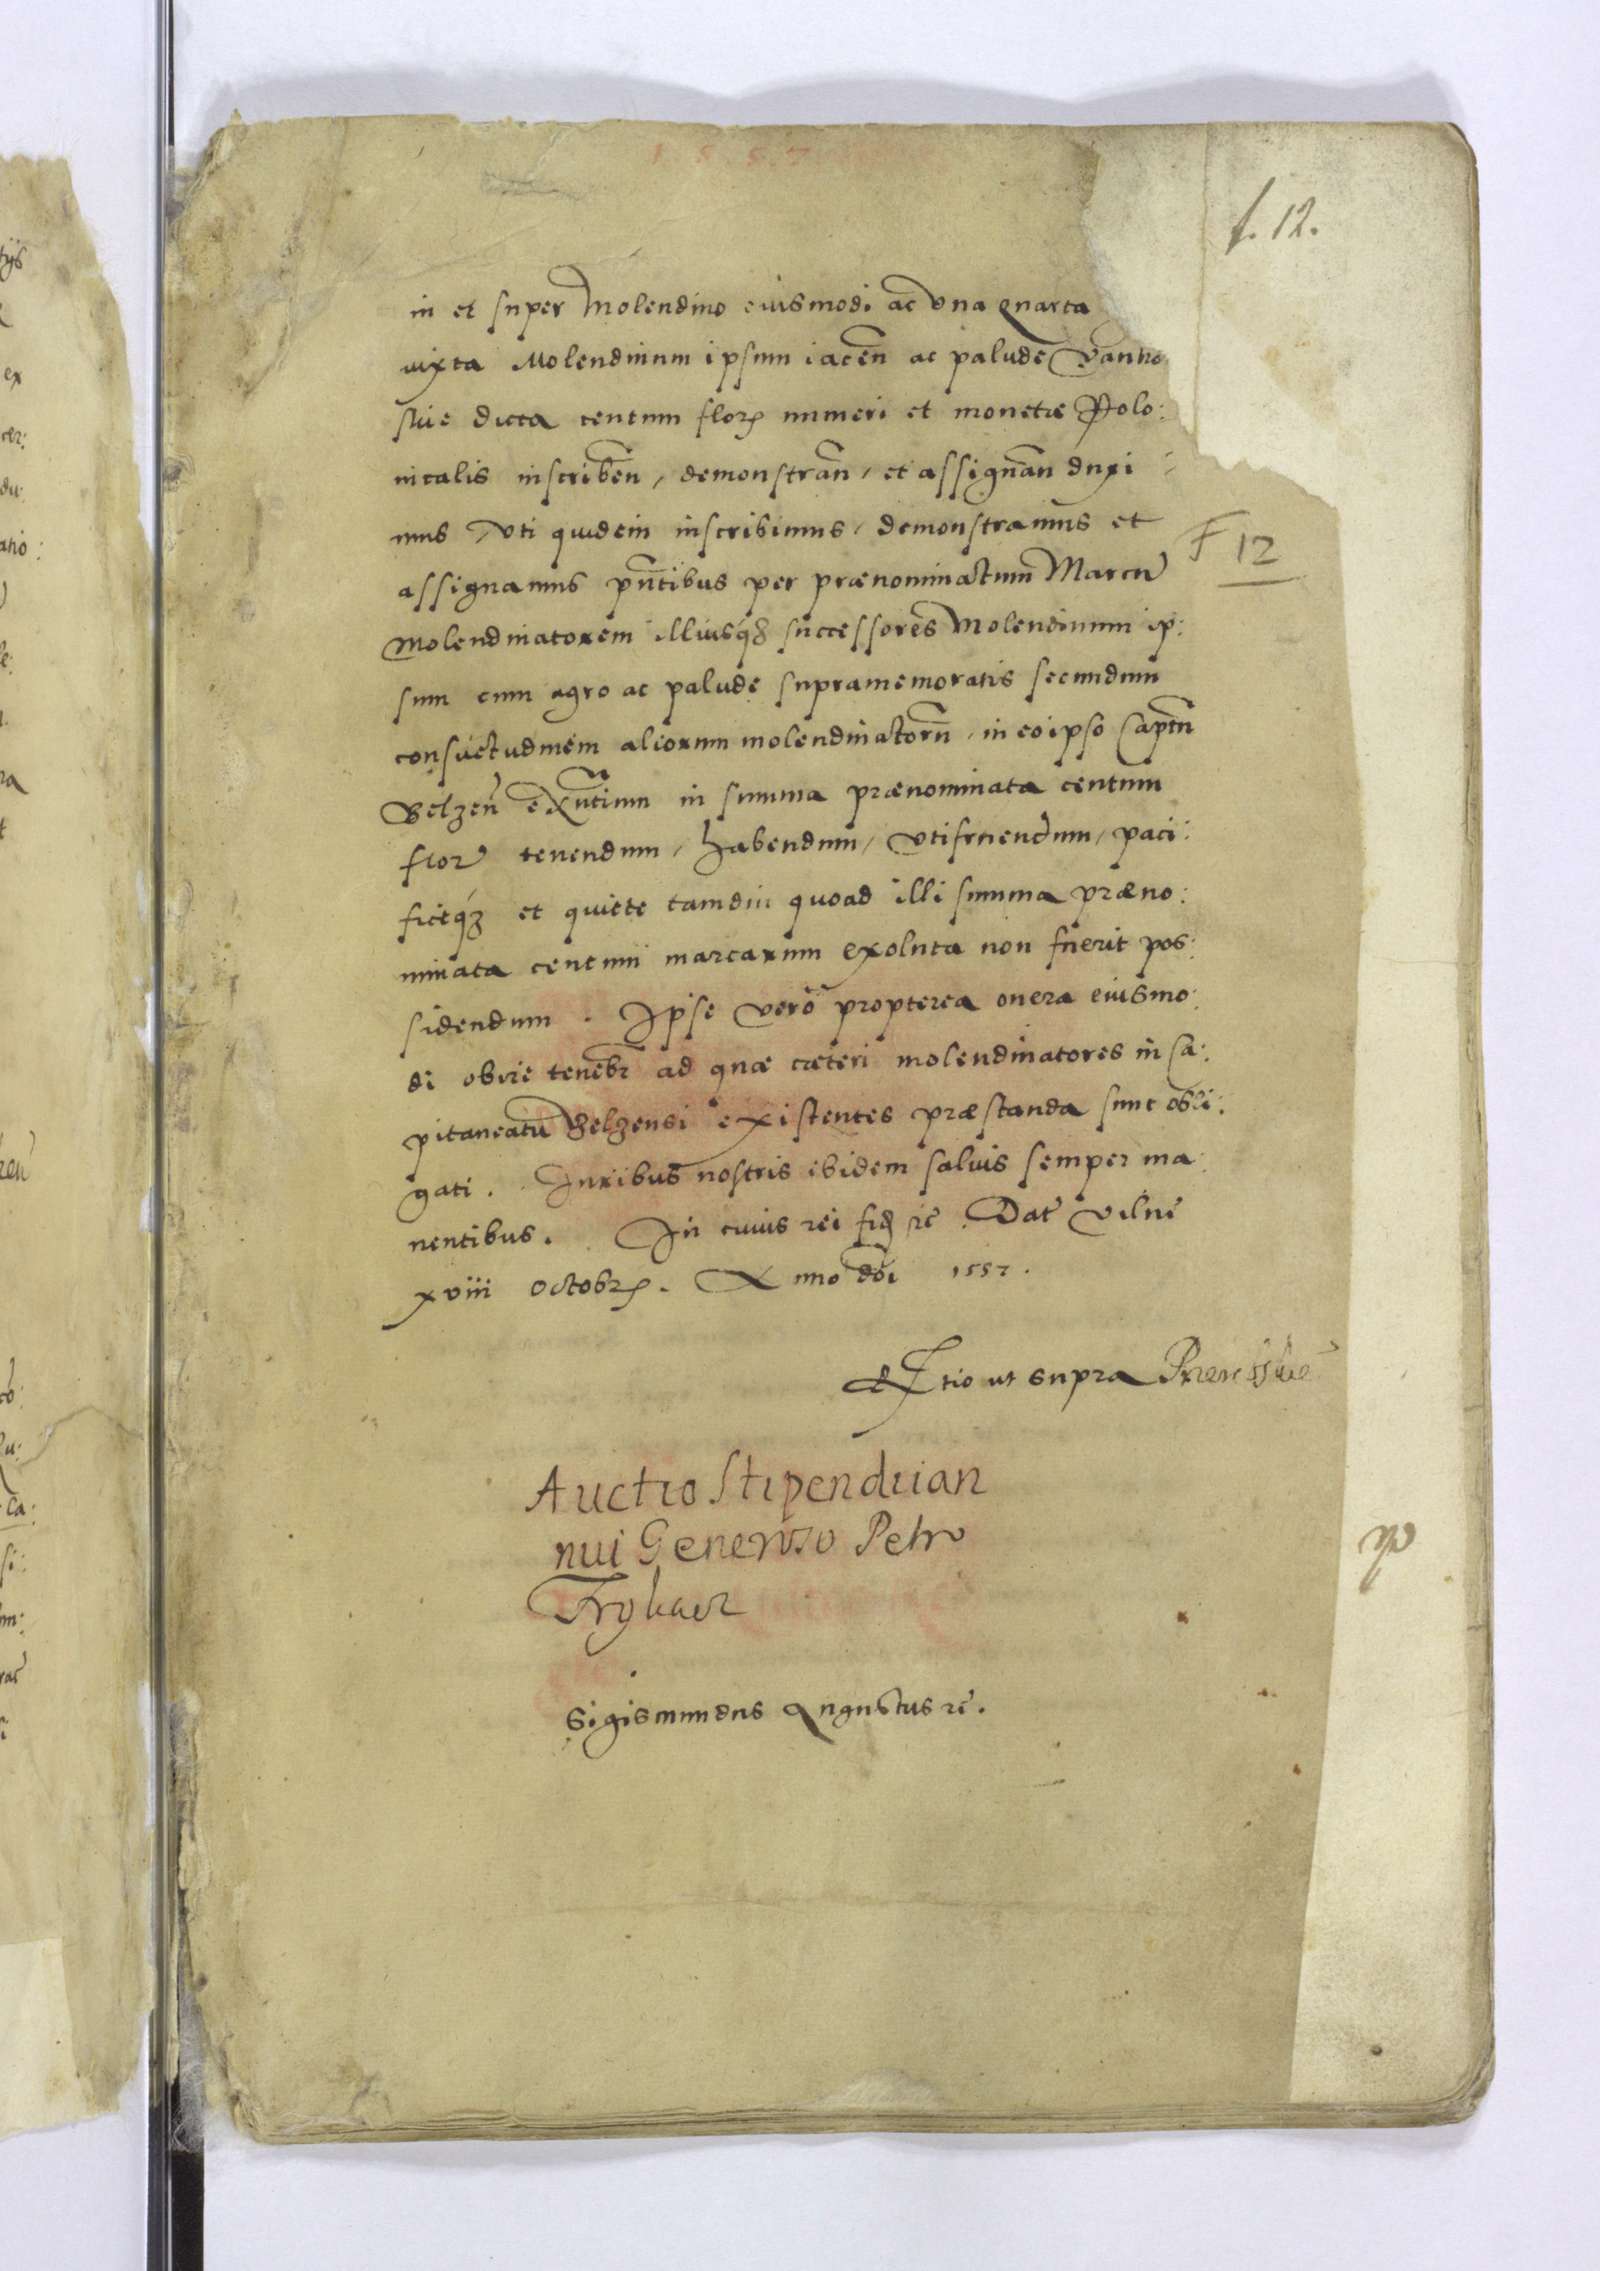 1557
f. 12.
in et super Molendino eiusmodi ac vna quarta
iuxta Molendinum ipsum iaceñ ac palude
siue dicta centum floꝝ numeri et monetæ Polo:
nicalis inscribeñ, demonstrañ, et assignañ duxi:
mus, vti quidem inscribimus, demonstramus et
F 12
assignamus pñtibus per prænominatum Marcū
Molendinatorem illiusqȝ successores Molendinum ip:
sum cum agro ac palude supramemoratis secundum
consuetudinem aliorum molendinatorū, in eoipso Captū
Belzeñ exñtium in summa prænominata centum
flor tenendum, habendum, vtifruendum, paci:
ficeqȝ et quiete tamdiu quoad illi summa præno:
minata centum marcarum exoluta non fuerit pos:
sidendum. Ipse vero propterea onera eiusmo:
di obire tenebr ad quæ cæteri molendinatores in Ca:
pitaneatū Belzensi existentes præstanda sunt obli:
gati. Iuribus nostris ibidem saluis semper ma:
nentibus. In cuius rei fid rē. Dat Vilnē
xviii octobrꝭ. Anno dñi 1557.
Rtio ut supra
Auctio Stipendii an
nui Generoso Petro
Sigismundus Augustus rē.